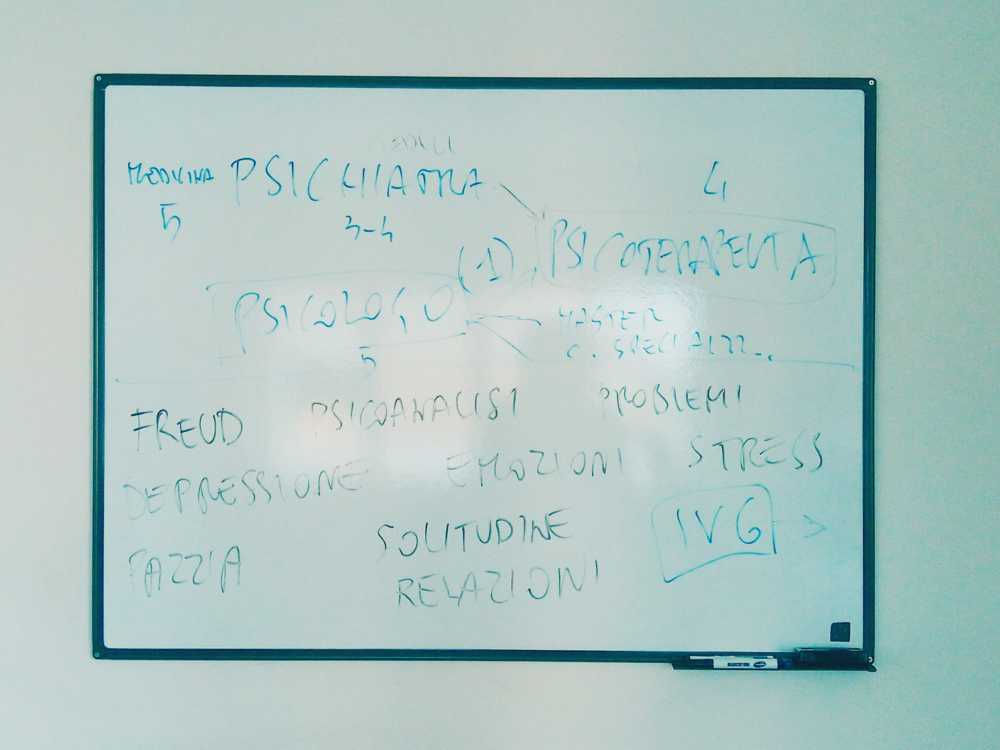 MEDICINA PSICHIATRA 4
5 3-4
(-1) PSICOTERAPEUTA
PSICOLOGO MASTER
5 C. SPECIALIZZ...
FREUD PSICOANALISI PROBLEMI
DEPRESSIONE EMOZIONI STRESS
SOLITUDINE IVG
PAZZIA RELAZIONI